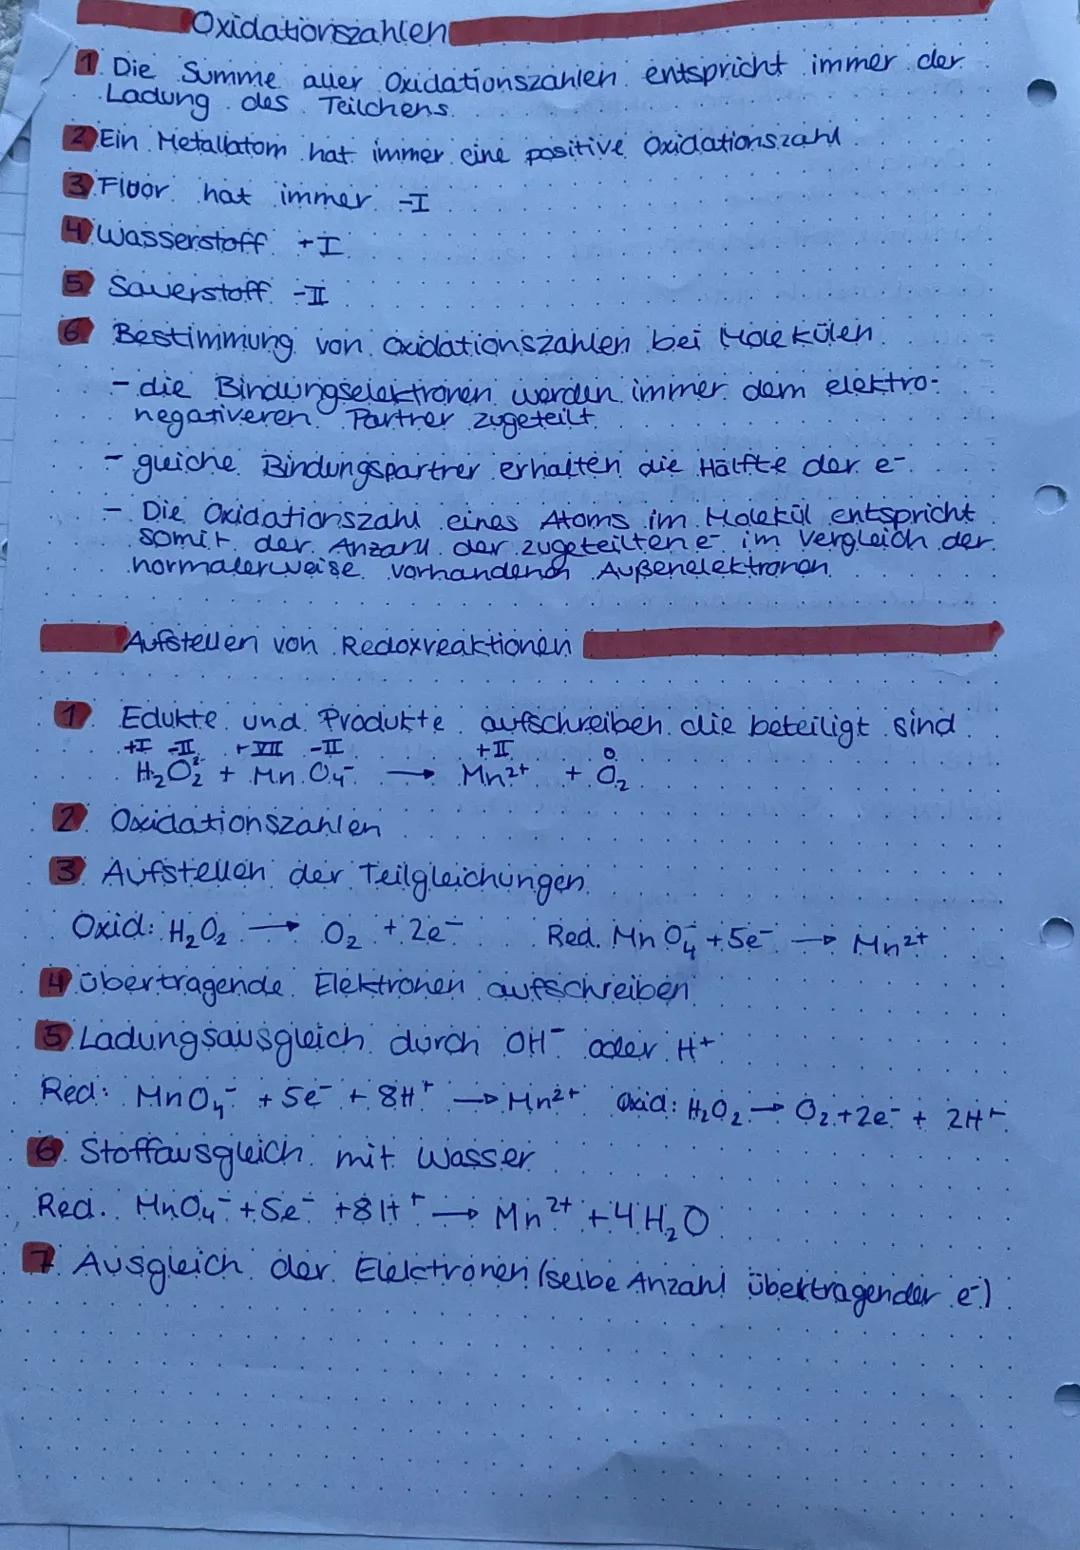 Oxidationszahlen
1. Die Summe aller Oxidationszahlen entspricht immer der
Ladung des Teilchens.
2. Ein Metallatom hat immer eine positive Oxidationszahl
3. Fluor hat immer -I
4. Wasserstoff +I
5. Sauerstoff -II
6. Bestimmung von Oxidationszahlen bei Molekülen
- die Bindungselektronen werden immer dem elektro-
negativeren Partner zugeteilt.
- gleiche Bindungspartner erhalten die Hälfte der e⁻.
- Die Oxidationszahl eines Atoms im Molekül entspricht
somit der Anzahl der zugeteilten e⁻ im Vergleich der
normalerweise vorhandenen Außenelektronen
Aufstellen von Redoxreaktionen
1. Edukte und Produkte aufschreiben die beteiligt sind
+I -II +VII -II +II 0
H₂O₂ + MnO₄⁻ → Mn²⁺ + O₂
2. Oxidationszahlen
3. Aufstellen der Teilgleichungen
Oxid: H₂O₂ → O₂ + 2e⁻ Red. MnO₄⁻ + 5e⁻ → Mn²⁺
4. übertragende Elektronen aufschreiben
5. Ladungsausgleich durch OH⁻ oder H⁺
Red: MnO₄⁻ + 5e⁻ + 8H⁺ → Mn²⁺ Oxid: H₂O₂ → O₂ + 2e⁻ + 2H⁺
6. Stoffausgleich mit Wasser
Red. MnO₄⁻ + 5e⁻ + 8H⁺ → Mn²⁺ + 4H₂O
7. Ausgleich der Elektronen (selbe Anzahl übertragender e⁻)